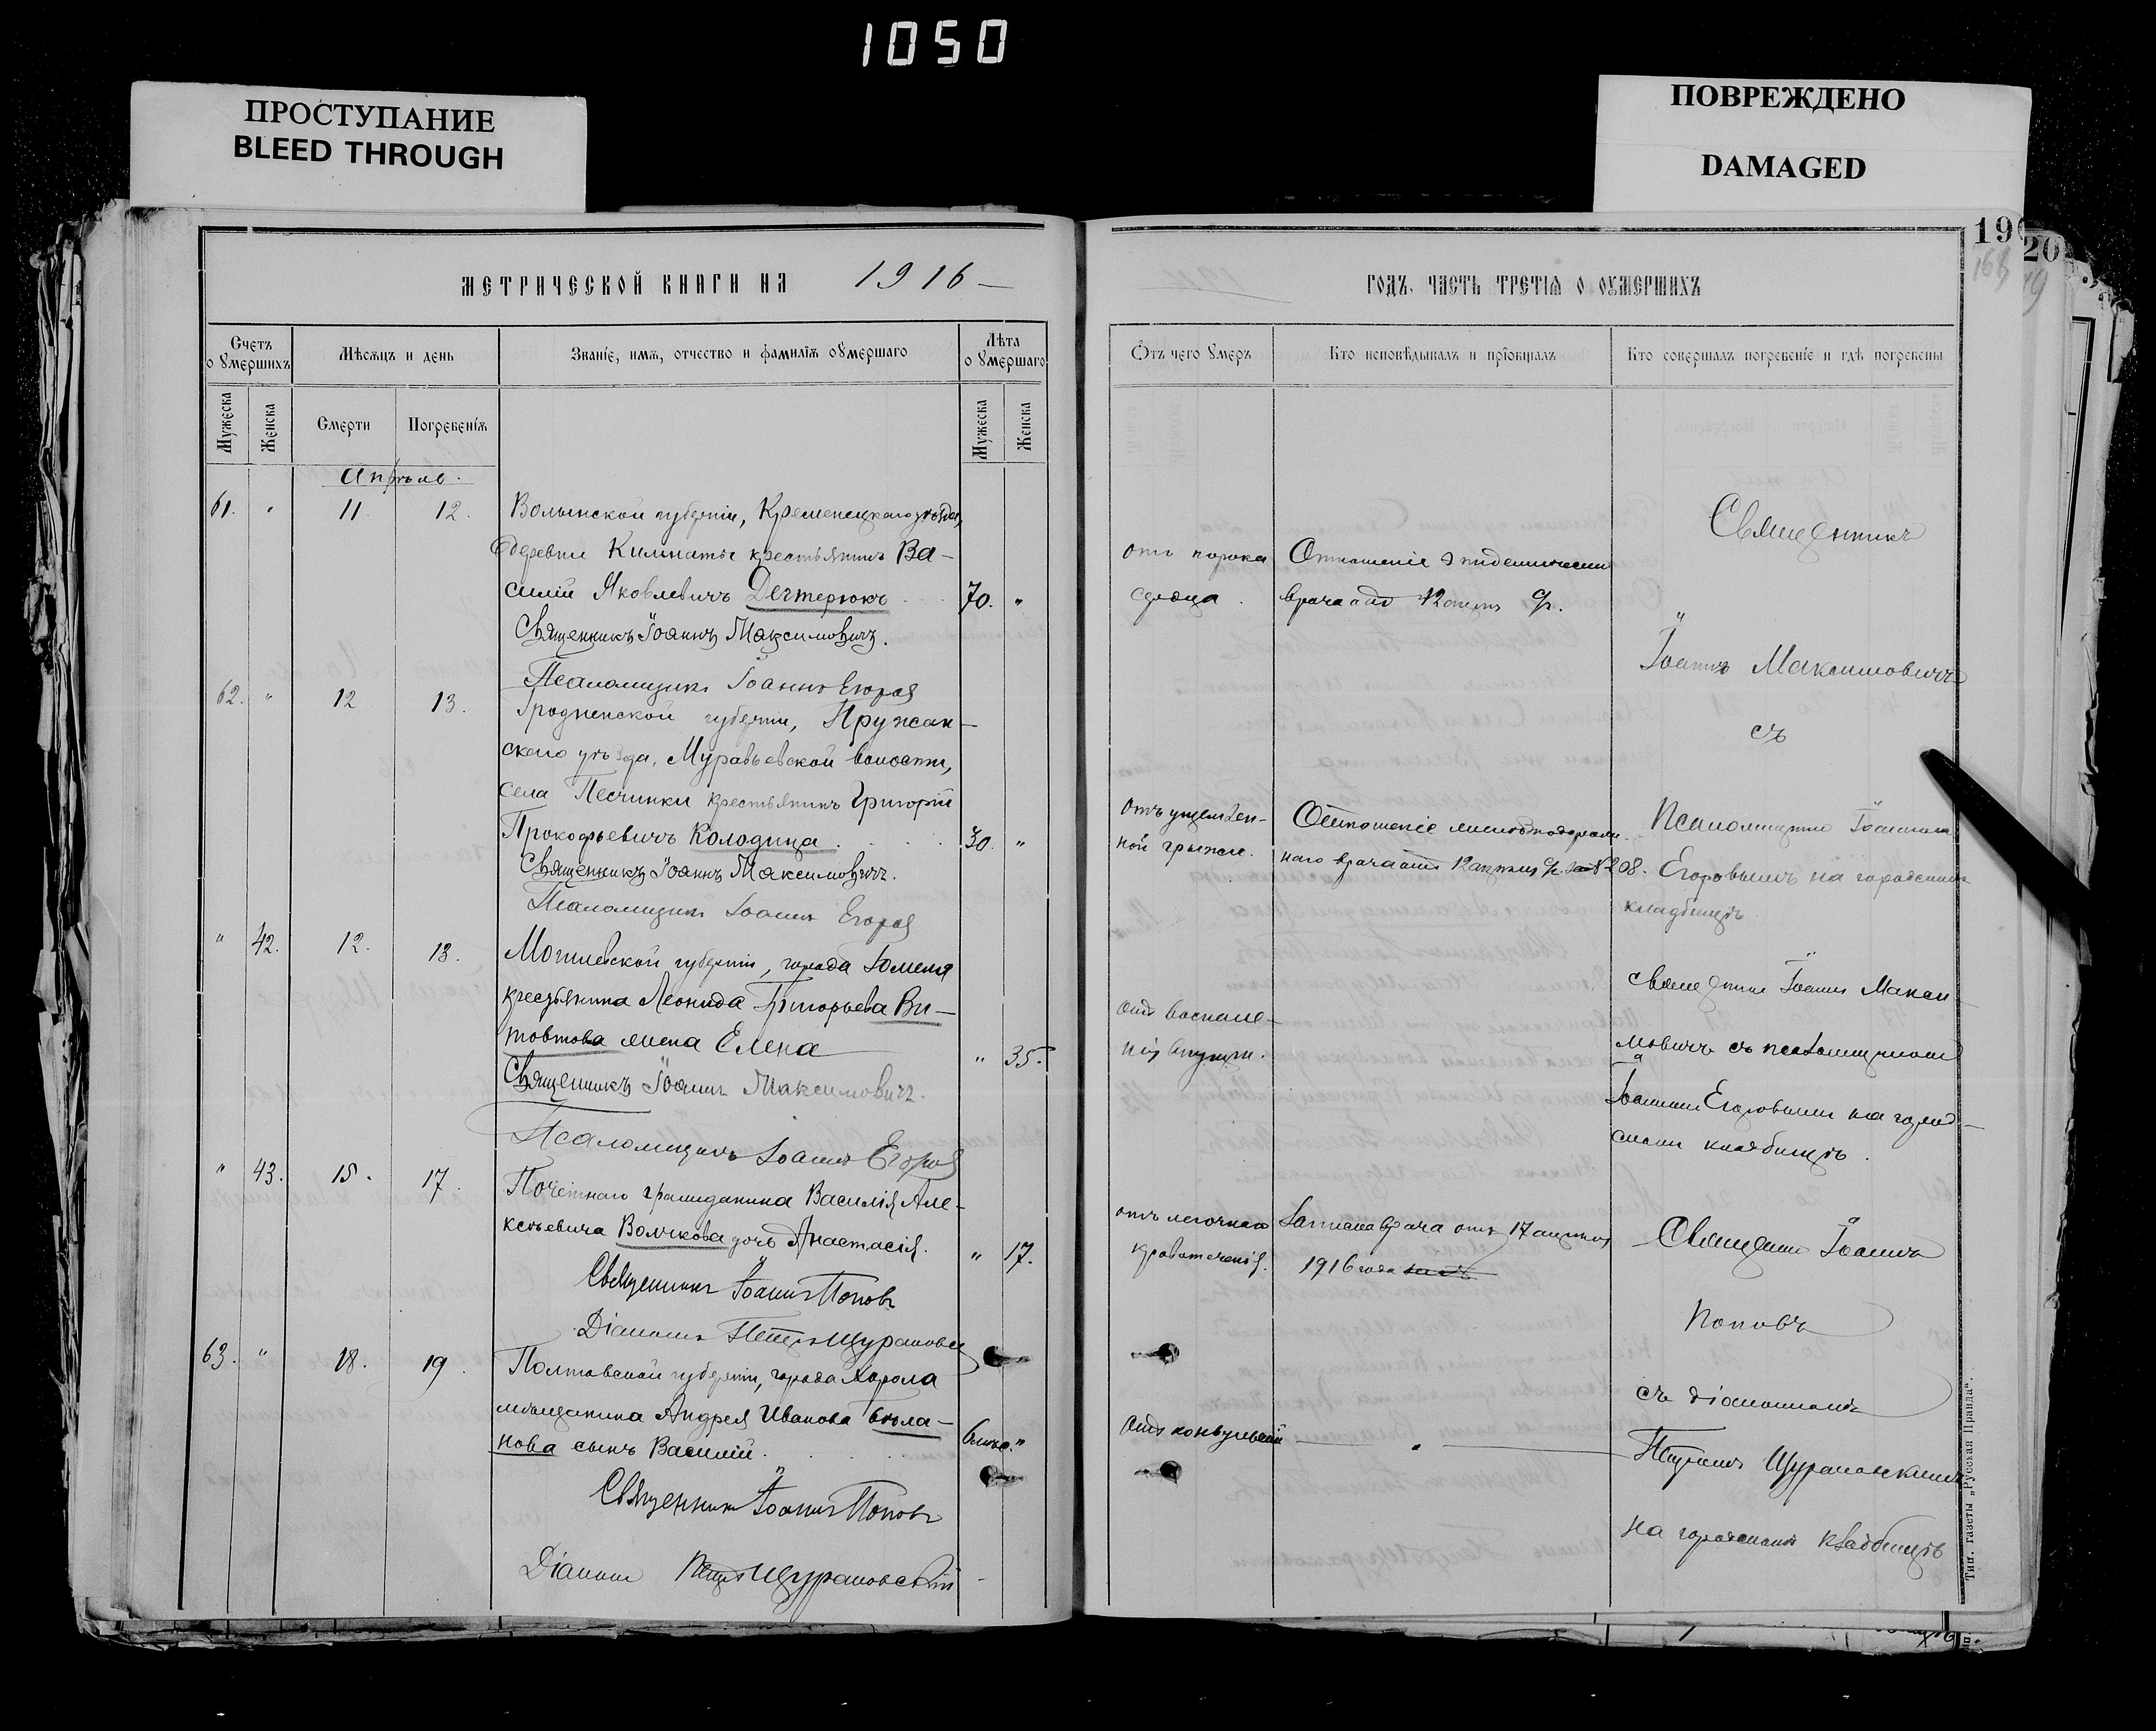 1050
ПРОСТУПАНИЕ
BLEED THROUGH
ПОВРЕЖДЕНО
DAMAGED
МЕТРИЧЕСКОЙ КНИГИ НА 1916
ГОДЪ, ЧАСТЬ ТРЕТІЯ О ОУМЕРШИХЪ
19
20
Счетъ о Умершихъ
Мѣсяцъ и день
Званіе, имя, отчество и фамилія оумершаго
Лѣта о Умершаго
Отъ чего Умеръ
Кто исповѣдывалъ и пріобщалъ
Кто совершалъ погребеніе и гдѣ погребены
Мужеска
Женска
Смерти
Погребенія
Мужеска
Женска
Апрѣль.
61. " 11 12. Волынской губерніи, Кременецкаго уѣзда,
деревни Кимнаты крестьянинъ Ва-
силій Яковлевичъ Дехтерюкъ 70. "
Священникъ Іоаннъ Максимовичъ.
Псаломщикъ Іоаннъ Егоровъ
отъ порока
сердца.
Отношеніе эпидемическ
врача отъ 12 апрѣля
Священникъ
Іоаннъ Максимовичъ
съ
62. " 12 13. Гродненской губерніи, Пружан-
скаго уѣзда, Муравьевской волости,
села Песчинки крестьянинъ Григорій
Прокофьевичъ Колодица 30. "
Священникъ Іоаннъ Максимовичъ.
Псаломщикъ Іоаннъ Егоровъ
отъ ущемлен-
ной грыжи.
Отношеніе
наго врача отъ 12 апрѣля за № 208.
Псаломщикомъ Іоанномъ
Егоровымъ на городскомъ
кладбищѣ
" 42. 12. 13. Могилевской губерніи, города Гомеля
крестьянина Леонида Григорьева Ви-
товтова жена Елена " 35.
Священникъ Іоаннъ Максимовичъ.
Псаломщикъ Іоаннъ Егоровъ
отъ воспале-
нія
священникъ Іоаннъ Макси-
мовичъ съ псаломщикомъ
Іоанномъ Егоровымъ на город-
скомъ кладбищѣ.
" 43. 15. 17. Почетнаго гражданина Василія Але-
ксѣевича Волчкова дочь Анастасія. " 17.
Священникъ Іоаннъ Поповъ
Діаконъ Петръ Щурановскій
отъ легочнаго
кровотеченія.
Записка врача отъ 17 апрѣля
1916 года
Священникъ Іоаннъ
Поповъ
63. " 18. 19. Полтавской губерніи, города Хорола
мѣщанина Андрея Иванова
нова сынъ Василій. 6 мѣс. "
Священникъ Іоаннъ Поповъ
Діаконъ Петръ Щурановскій
отъ конвульсій
съ діакономъ
Петромъ Щурановскимъ
на городскомъ кладбищѣ
Тип. газеты „Русская Правда“.